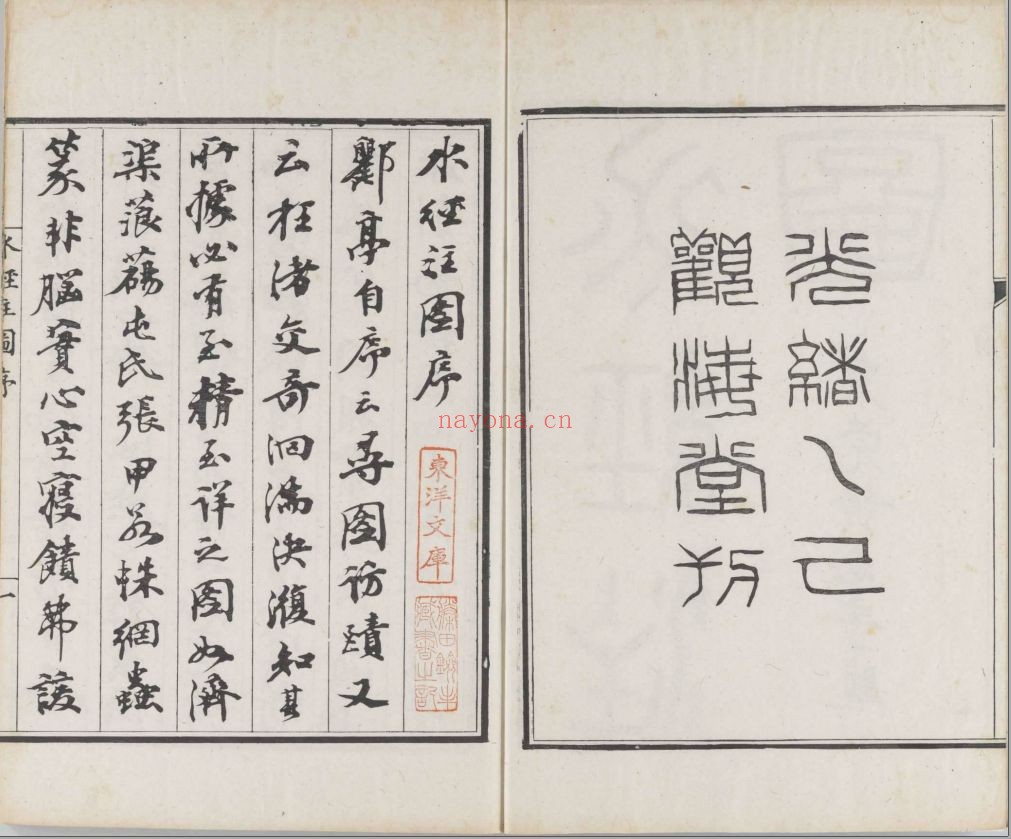 光緒乙巳
觀海堂刊
水經注圖序
東洋文庫
藤田劍丰
藏書之記
酈亭自序云尋圖訪賾又
云枉渚交奇洄湍決澓知其
所據必有至精至詳之圖如濟
渠蒗蕩屯氏張甲若蛛網蟲
篆非腦實心空寢饋弗諼
水經注圖序
一
nayona.cn